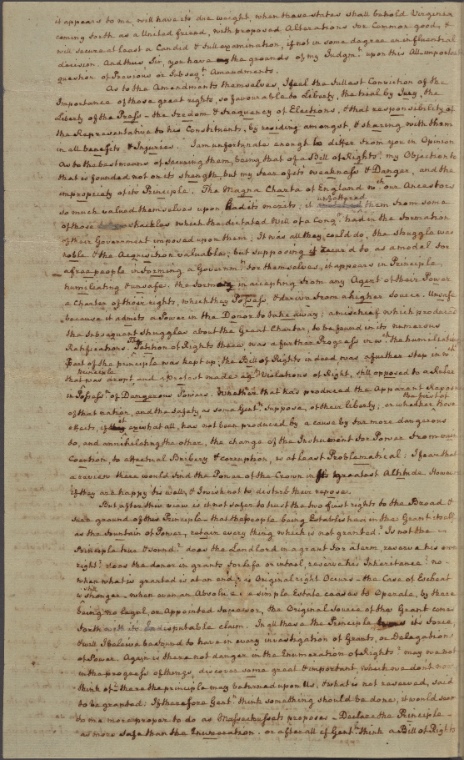 it appears to me, will have its due weight, when those states shall behold Virginia
coming forth as a United friend, with proposed Alterations for Common good, &
will secure at least a Candid & full examination, if not in some degree an influential
decision. And thus Sir, you have my the grounds of my Judgmt. upon this All-important
question of Previous or Subseqt. Amendments.
As to the Amendments themselves, I feel the fullest Conviction of the
Importance of those great rights, so favourable to Liberty, the trial by Jury, the
Liberty of the Press - the freedom & frequency of Elections, & that responsibility of
the Representative to his Constituents, by residing amongst, & sharing with them
in all benefits & Injuries. I am unfortunate enough to differ from you in Opinion
as to the best means of securing them, being that of a Bill of Rights; my Objection to
that is founded not on its strength, but my fears of its weakness & Danger, and the
impropriety of its Principle. The Magna Charta of England wch. our Ancestors
so much valued themselves upon had its merits, it unfettered them from some
of those shackles which the dictated Will of a Congr. had in the formation
of their Government imposed upon them; It was all they could do, the struggle was
noble & the Acquisition valuable; but supposing it recur'd to, as a model for
a free people in forming a Governmt. for themselves, it appears in Principle
humiliating & unsafe: the former in accepting from any Agent of their Power
a Charter of those rights, which they Possess, & drawn from a higher Source. Unsafe
because it admits a Power in the Donor to take away; a mischief which produced
the subsequent struggles about the Great Charter, to be found in its numerous
Ratifications. The Petition of Rights theirs was a further Progress in wch. the humiliating
part of the principle was kept up; the Bill of Rights indeed was a further step in wch.
that was dropt and a Protest made agt. Violations of Right, still opposed to a Ruler
in Possessn. of Dangerous Powers. Whether that has produced the Apparent Repose
of that nation, and the safety as some Gentn. suppose, of their liberty, or whether those
effects, if they exist at all, has not been produced by a cause by far more dangerous
to, and annihilating the other, the change of the Instrument for Power from
Coertion, to effectual Bribery & corruption, is at least Problematical: I fear that
a review there would find the Power of the Crown in its greatest Altitude. However
if they are happy tis well, & I wish not to disturb their repose.
But after this view is it not safer to trust the two first rights to the Broad &
sure ground of this Principle - that the People being Established in the Grant itself
as the fountain of Power, retain every thing which is not granted? Is not the
Principle true & sound? does the Landlord in a grant for a term, reserve his own
right? does the donor in grants for life or intail, reserve his Inheritance? no -
when what is granted is at an end, his Original right Occurs - the Case of Escheat
is still stronger - when even an Absolute fee simple Estate ceases to Operate, by there
being no legal, or Appointed Successor, the Original Source of the Grant comes
forth with its Indisputable claim. In all these the Principle has its force,
& will I believe be found to have in every investigation of Grants, or Delegations
of Power. Again is there not danger in the Enumeration of Rights? may we not
in the progress of things, discover some great & important, which we don't now
think of - there the principle may be turned upon Us, & what is not reserved, said
to be granted; If therefore Gentn. think something should be done, it would seem
to me more proper to do as Massachusetts proposes - Declare the Principle
as more safe than the Enumeration. or after all if Gentn. think a Bill of Rights